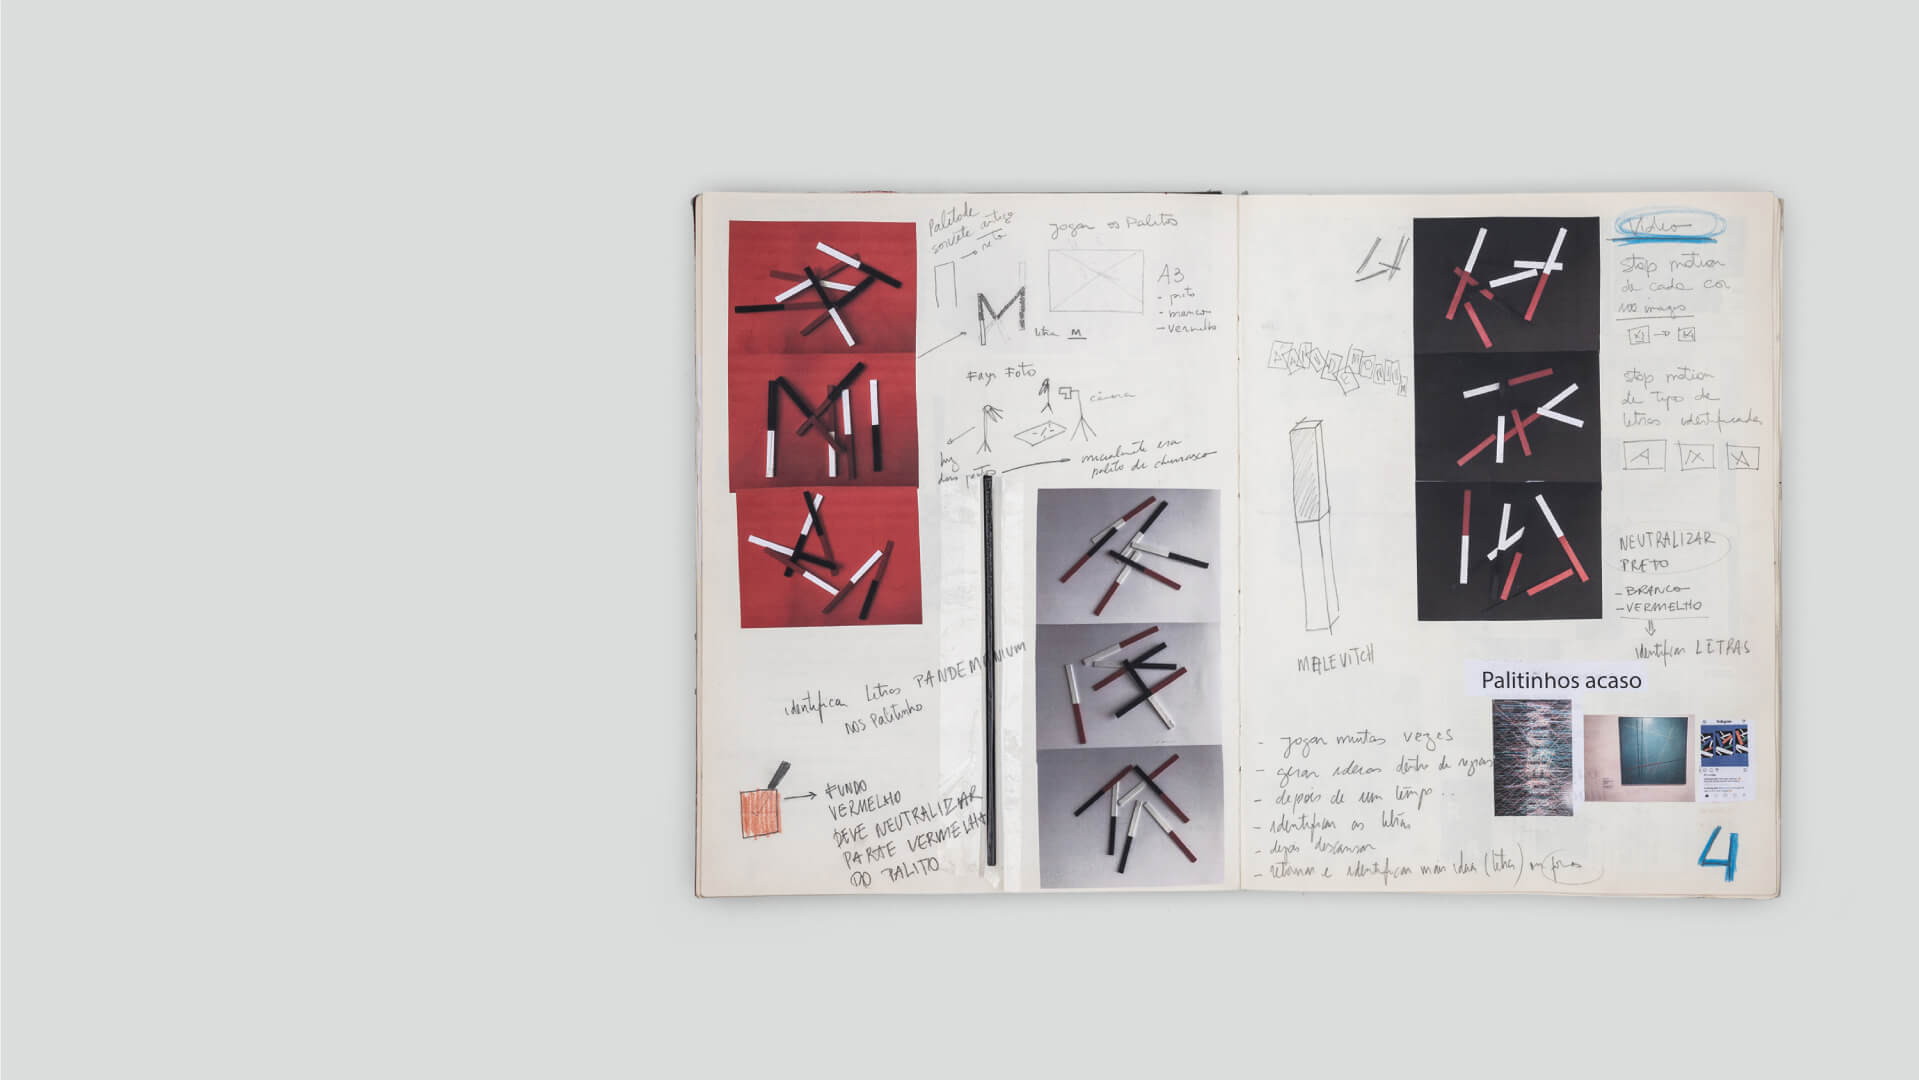 Palito de
sorvete antigo
reto
Jogar os Palitos
A3
- preto
- branco
- vermelho
letra M
Fazer Foto
câmera
luz
dois pontos
inicialmente era
palito de churrasco
identificar letras PANDEMONIUM
nos Palitinho
FUNDO
VERMELHO
DEVE NEUTRALIZAR
PARTE VERMELHA
DO PALITO
MALEVITCH
Video
stop motion
de cada cor
100 imagens
stop motion
de tipo de
letras identificadas
NEUTRALIZAR
PRETO
- BRANCO
- VERMELHO
identificar LETRAS
Palitinhos acaso
- jogar muitas vezes
- gerar ideias dentro de regras
- depois de um tempo ..
- identificar as letras
- deixar descansar
- retornar e identificar mais ideias (letras)
4